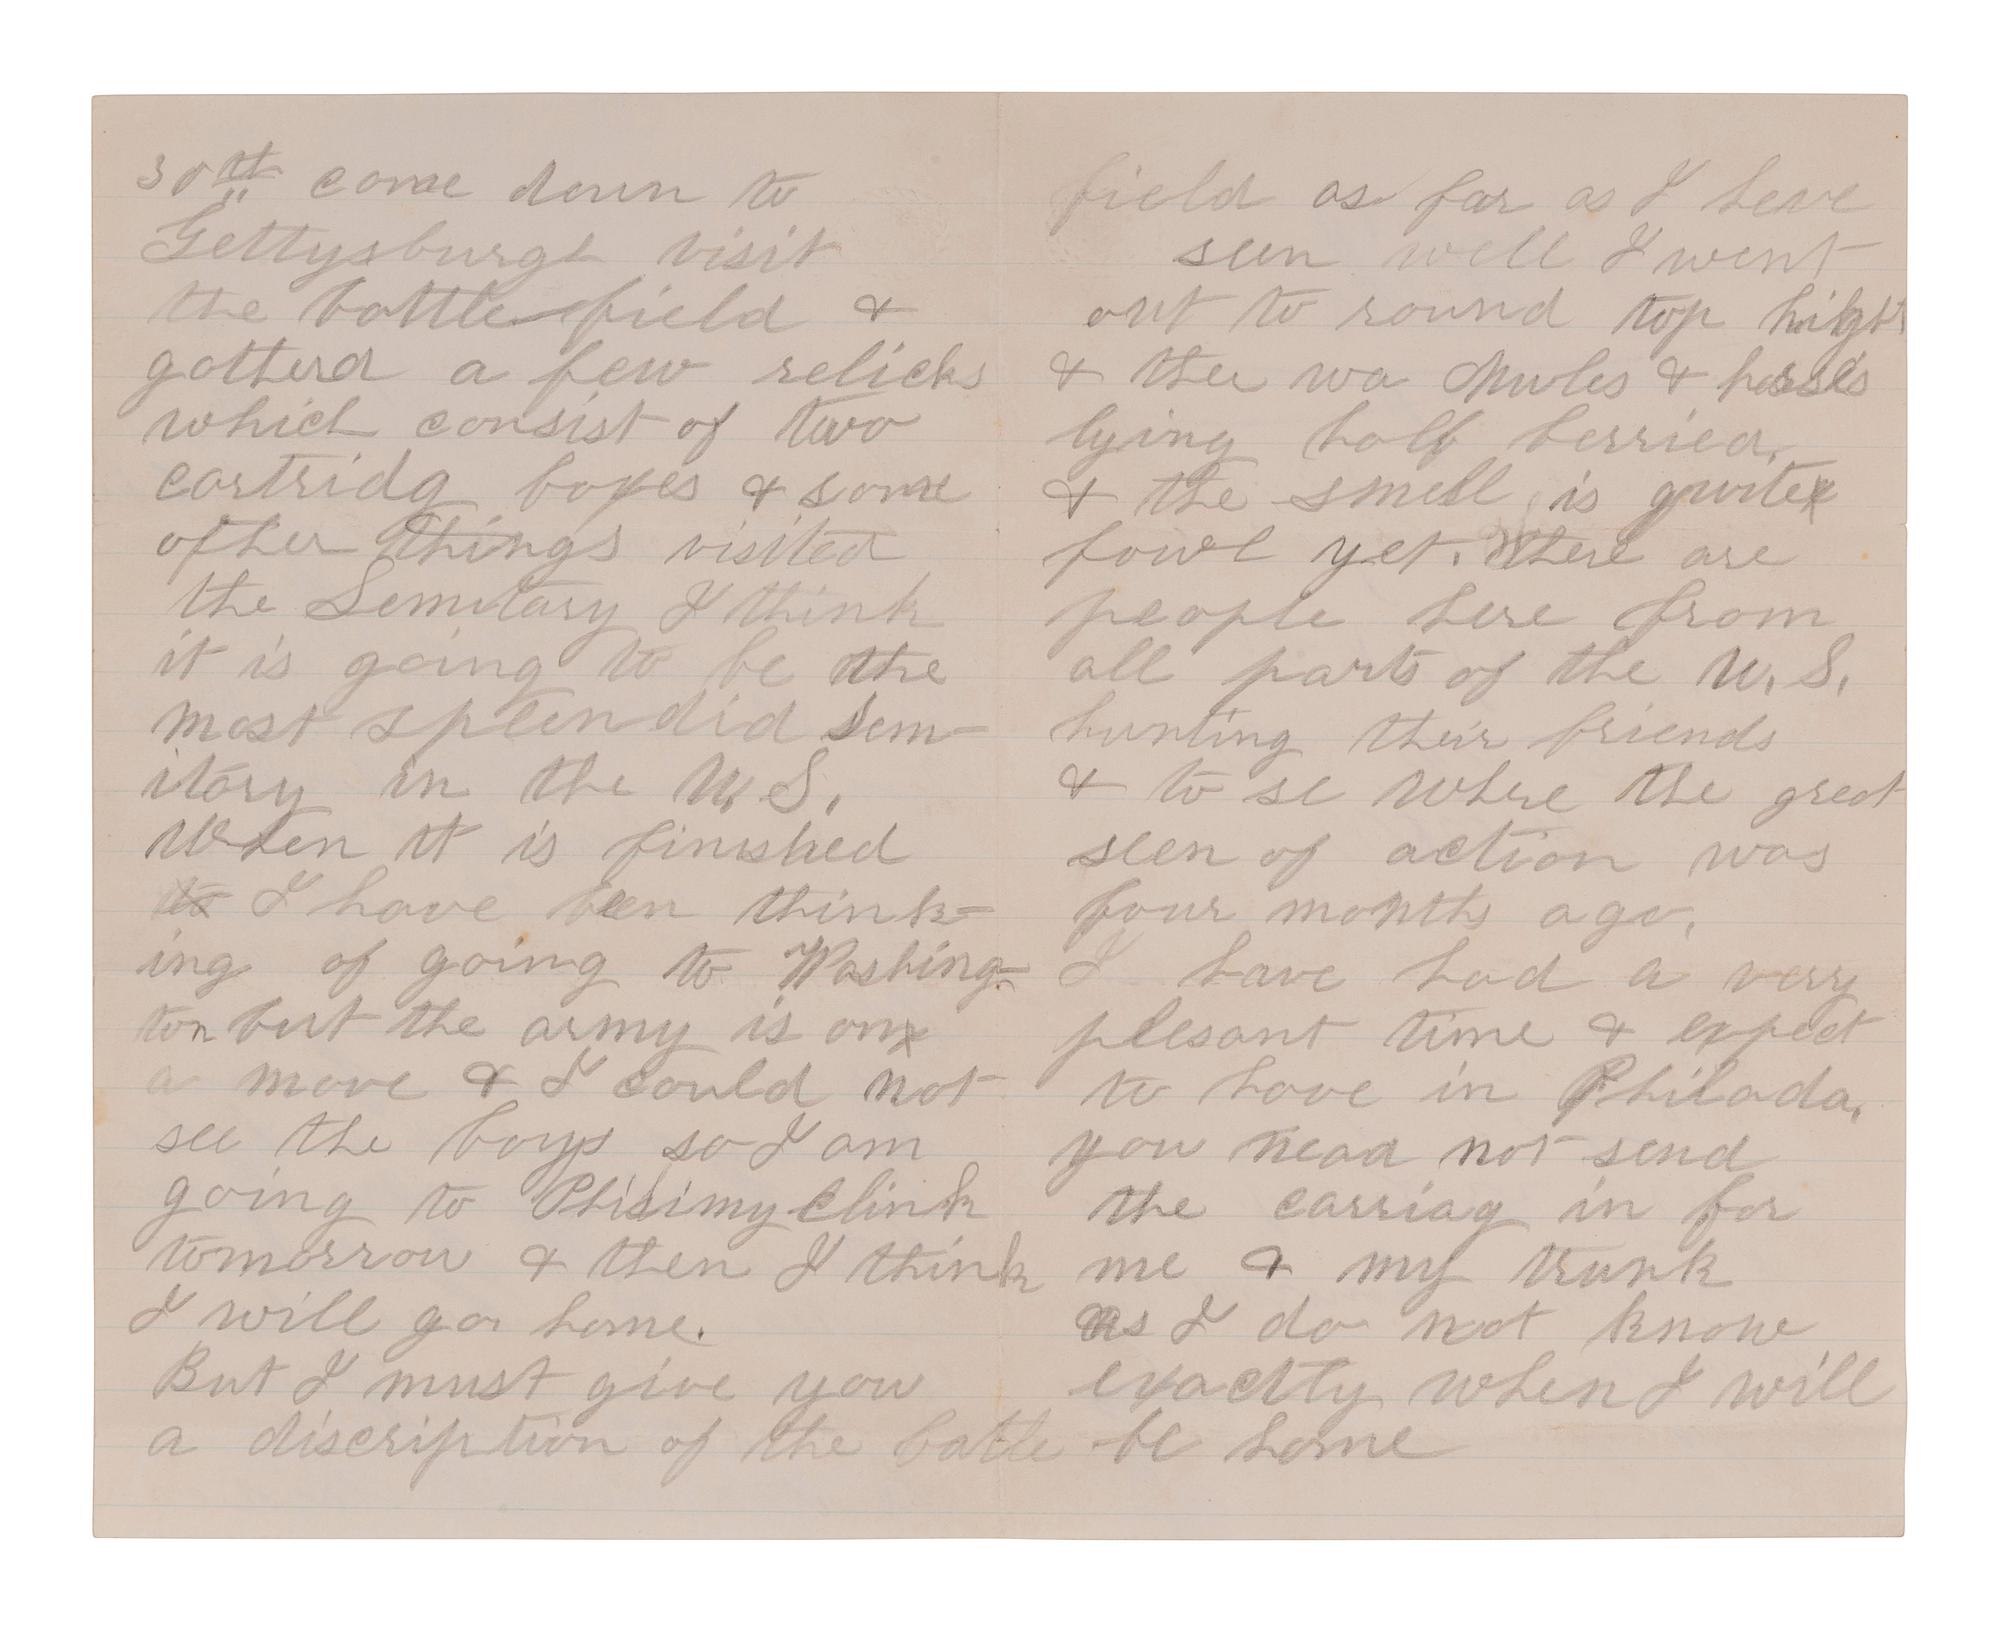 30th come down to
Gettysburgh visit
the battle field &
gotherd a few relicks
which consist of two
cartridg boxes & some
other things visited
the Semitary I think
it is going to be the
most splendid Sem-
itary in the U.S.
When it is finished
I have been think-
ing of going to Washing-
ton but the army is on
a move & I could not
see the boys so I am
going to
tomorrow & then I think
I will go home.
But I must give you
a discription of the batle
field as far as I heve
seen well I went
out to round top
& thee wa Mules & horses
lying half berried,
& the smell is quite
fowl yet. There are
people here from
all parts of the U.S.
hunting their friends
& to se where the great
seen of action was
four months ago.
I have had a very
plesant time & expect
to have in Philada.
you nead not send
the carriag in for
me & my trunk
as I do not know
exactly when I will
be home